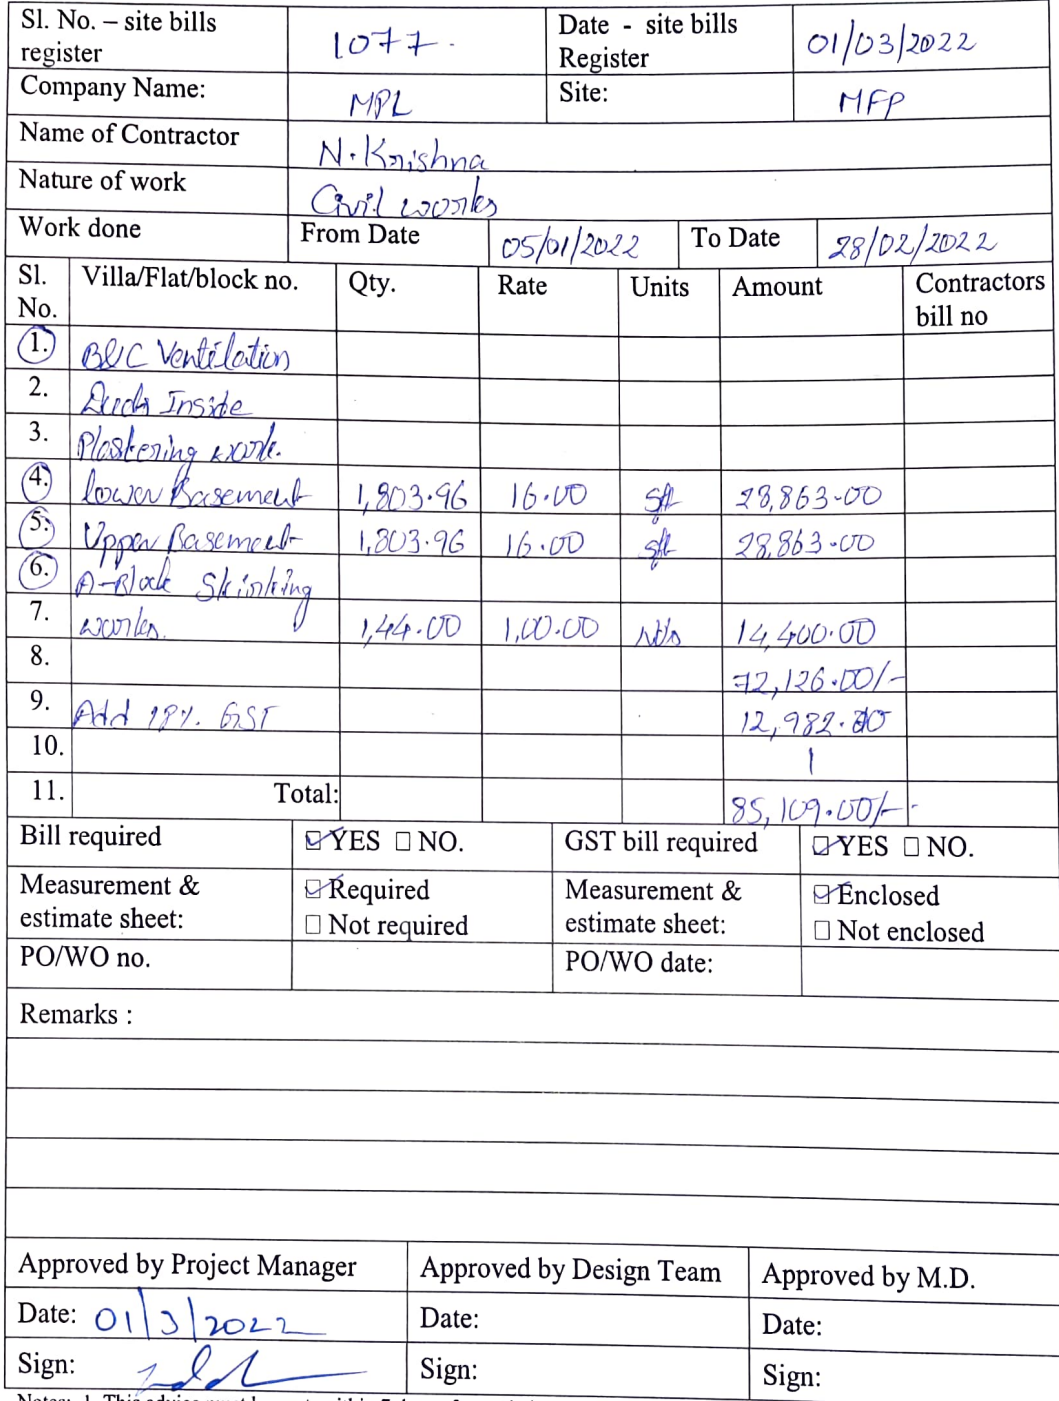 Sl. No. – site bills register 1077. Date - site bills Register 01/03/2022
Company Name: MPL Site: MFP
Name of Contractor N. Krishna
Nature of work Civil works
Work done From Date 05/01/2022 To Date 28/02/2022
Sl. No. Villa/Flat/block no. Qty. Rate Units Amount Contractors bill no
1. B&C Ventilation
2. Ducts Inside
3. Plastering work.
4. lower Basement 1,803.96 16.00 sft 28,863-00
5. Upper Basement 1,803.96 16.00 sft 28,863-00
6. A-Block Skirking
7. works. 1,44.00 1,00.00 14,400.00
8. 72,126.00/-
9. Add 18%. GST 12,982.80
10.
11. Total: 85,109.00/-
Bill required YES NO. GST bill required YES NO.
Measurement & estimate sheet: Required Not required Measurement & estimate sheet: Enclosed Not enclosed
PO/WO no. PO/WO date:
Remarks :
Approved by Project Manager Approved by Design Team Approved by M.D.
Date: 01/3/2022 Date: Date:
Sign: Sign: Sign: